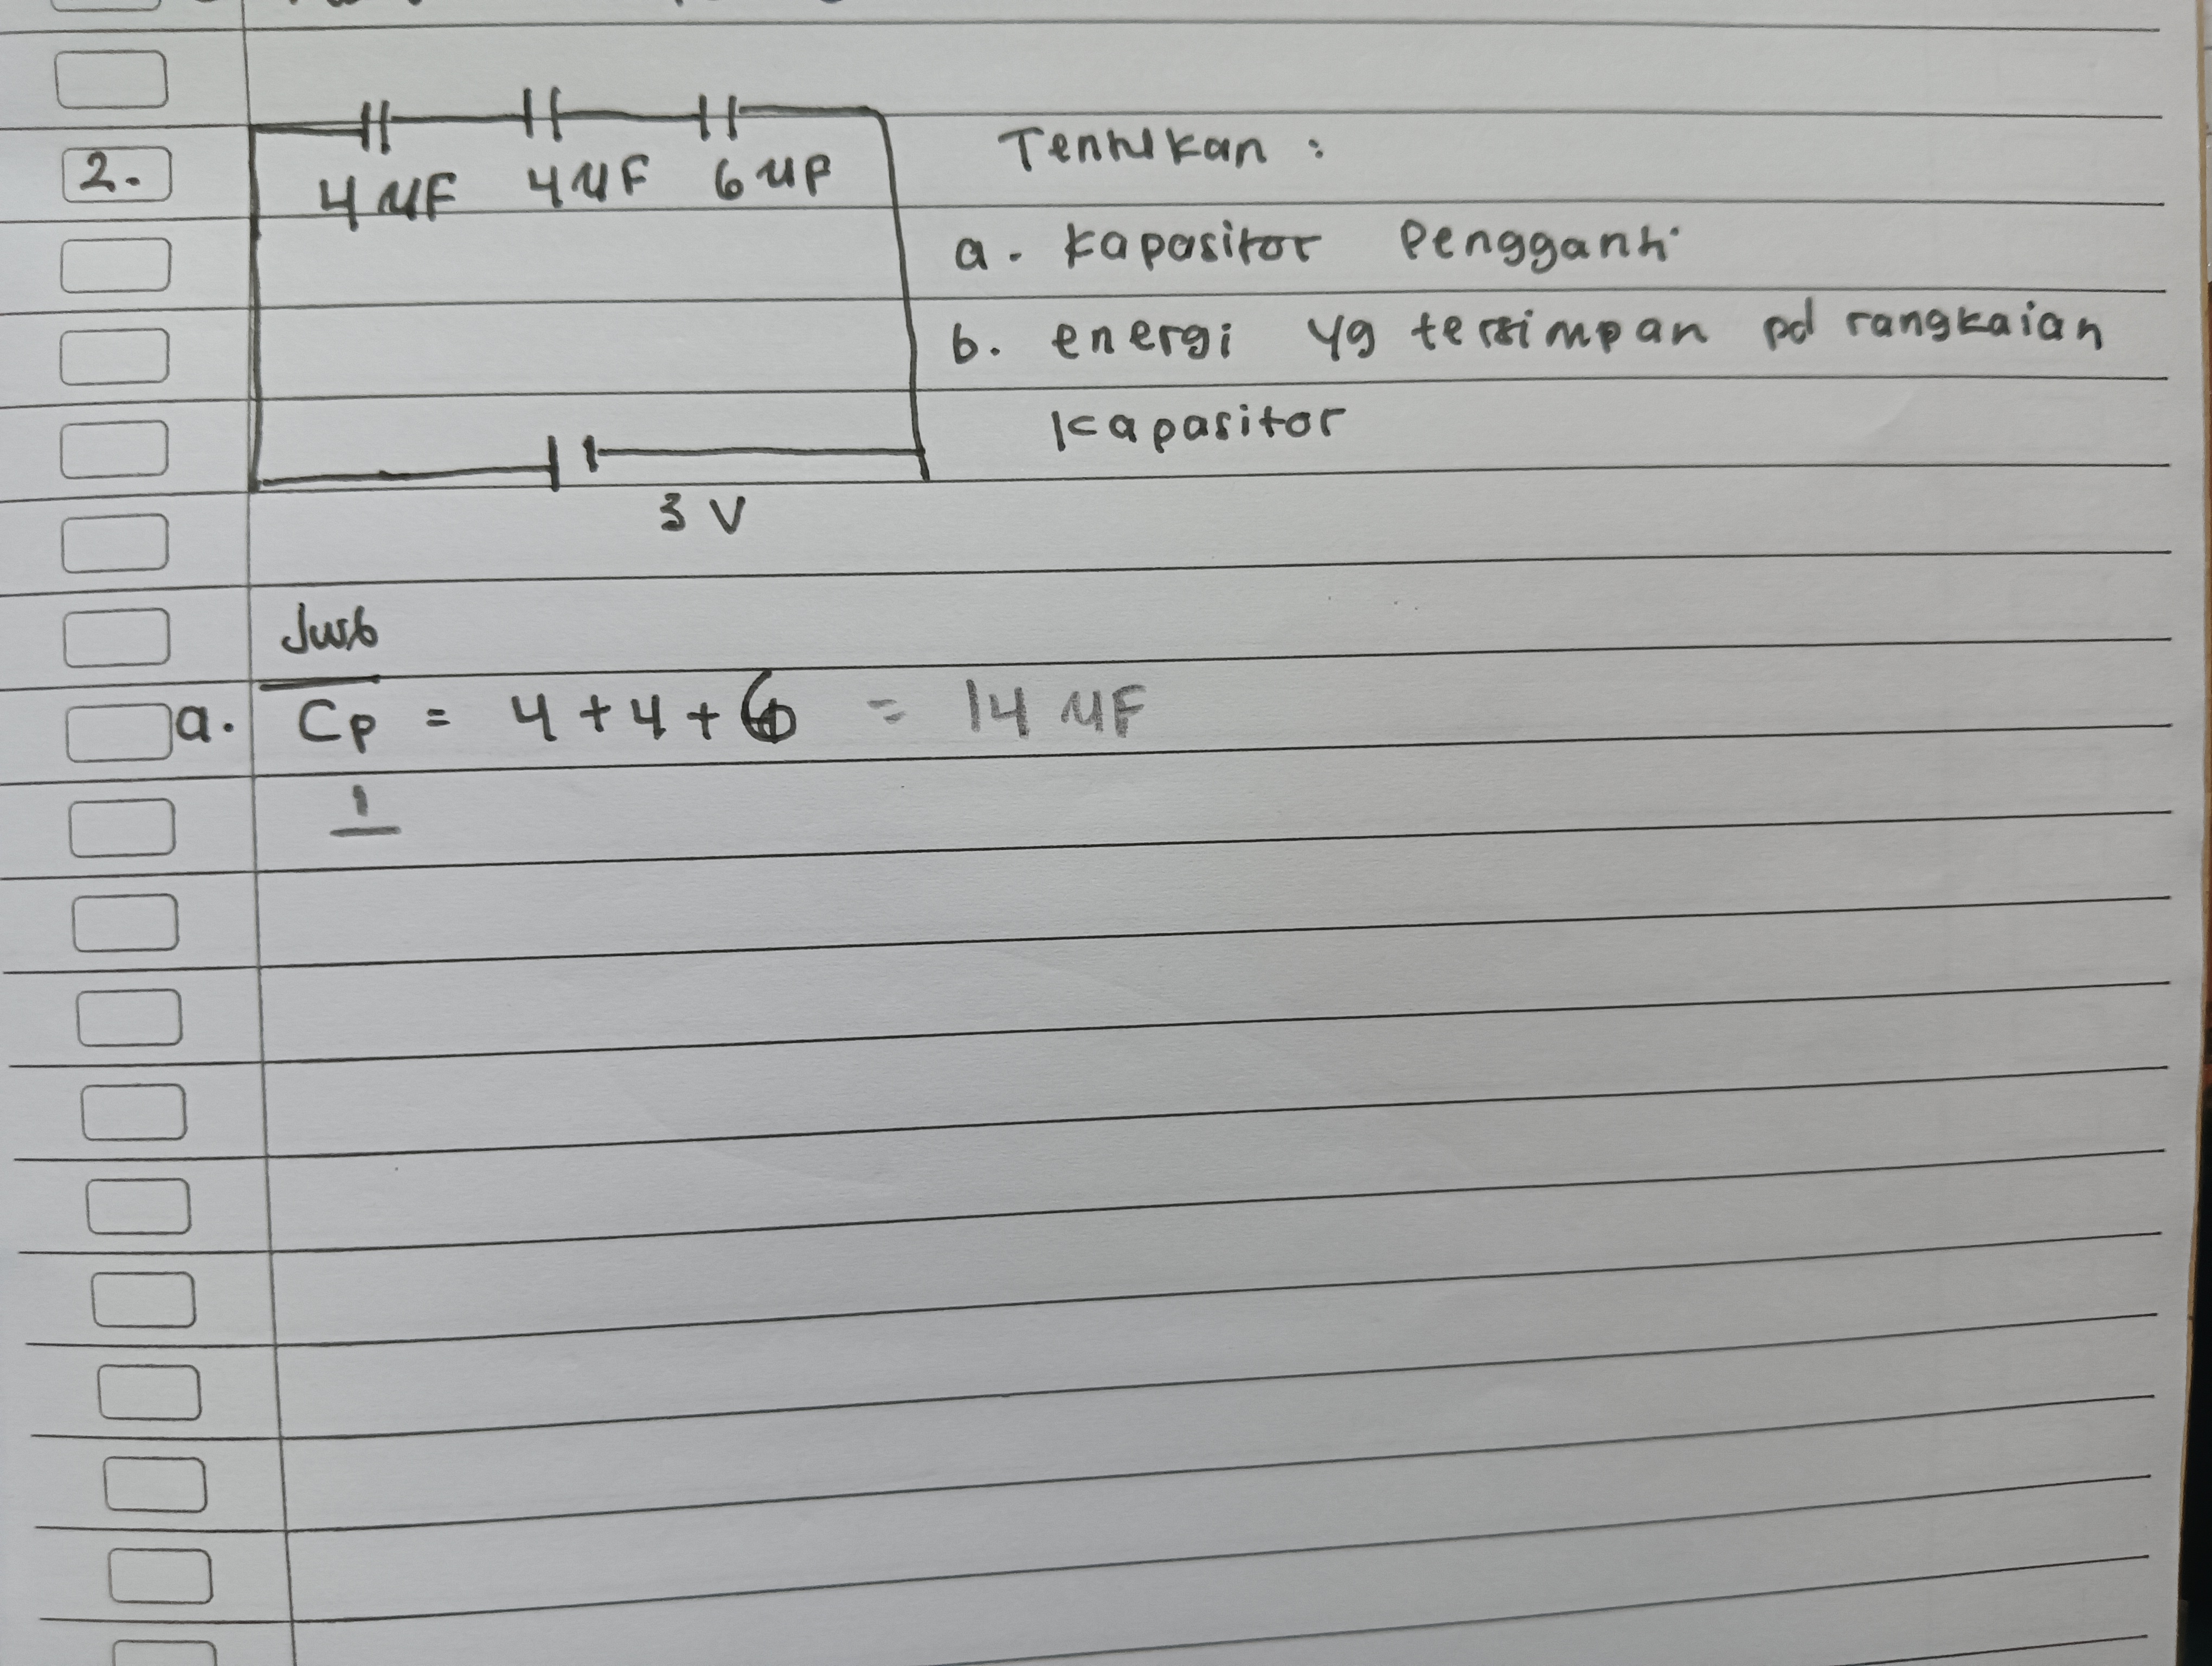 2.
4 μF 4 μF 6 μF
3 V
Tentukan :
a. Kapasitor Pengganti
b. energi yg tersimpan pd rangkaian
Kapasitor
Jwb
a. Cp = 4 + 4 + 6 = 14 μF
1